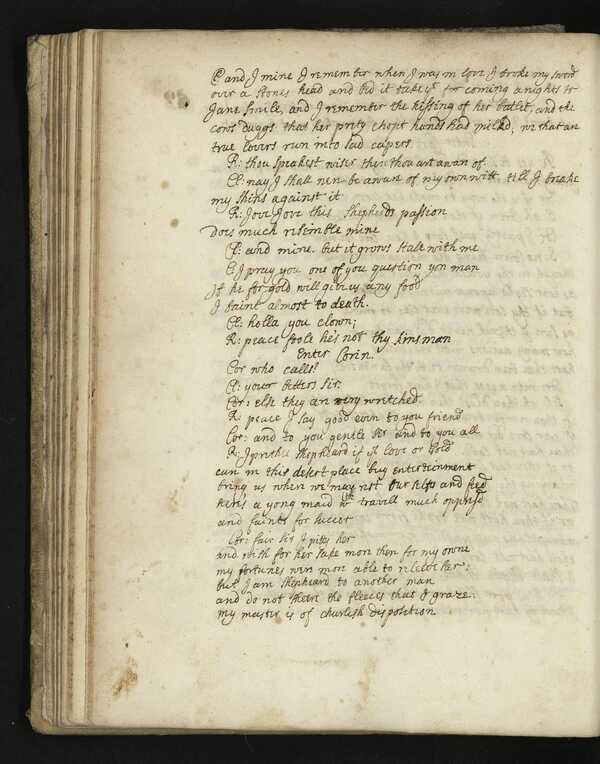 Cl: and I mine I remember when I was in love I broke my sword
over a stones head and bid it take yt for coming a nights to
Jane Smile, and I remember the kissing of her batlet, and the
cows duggs that her prety chopt hands had milkd, we that are
true lovers run into sad capers
R: thou speakest wiser then thou art aware of.
Cl: nay I shall nere be aware of my own witt till I breake
my shins against it
R: Jove Jove this shepherds passion
Does much resemble mine
Cl: and mine. but it grows stale with me
C: I pray you one of you question yon man
If he for gold will give us any food
I faint almost to death.
Cl: holla you clown;
R: peace foole he's not thy kinsman
Enter Corin.
Cor who calls?
Cl: your betters sir.
Cor: else they are very wretched
R: peace I say good even to you friend
Cor: and to you gentle sir and to you all
R: I prithee shepheard if it love or gold
can in this desert place buy entertainment
bring us where we may rest our selfes and feed
here's a yong maid wth travell much oppresd
and faints for succer
Cor: fair sir I pitty her
and wish for her sake more then for my owne
my fortunes were more able to releeve her;
but I am shepheard to another man
and do not sheere the fleeces that I graze:
my master is of churlish disposition